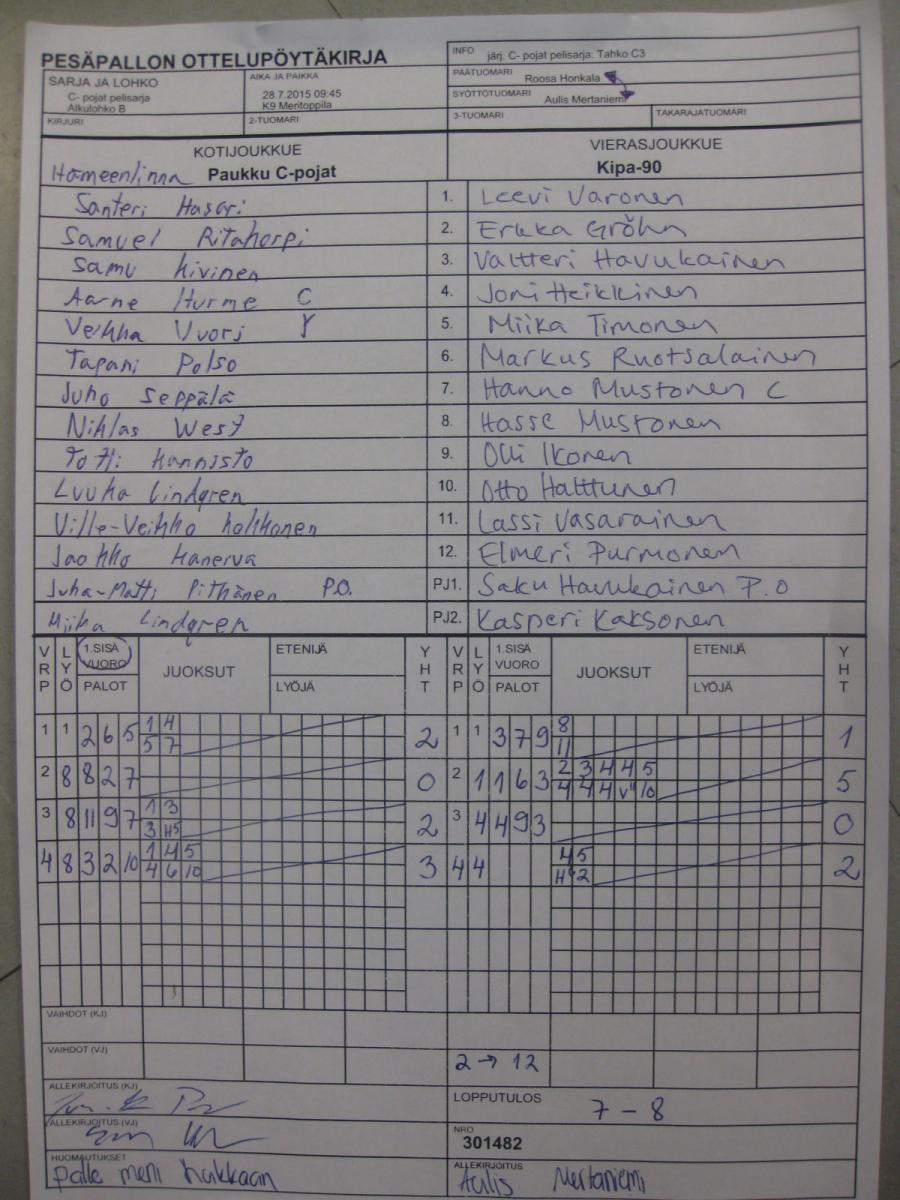 PESÄPALLON OTTELUPÖYTÄKIRJA
INFO järj. C- pojat pelisarja: Tahko C3
SARJA JA LOHKO
C- pojat pelisarja
Alkulohko B
AIKA JA PAIKKA
28.7.2015 09:45
K9 Mentoppila
PÄÄTUOMARI Roosa Honkala
SYÖTTÖTUOMARI Aulis Mertaniemi
KIRJURI 2-TUOMARI 3-TUOMARI TAKARAJATUOMARI
KOTIJOUKKUE VIERASJOUKKUE
Hämeenlinna Paukku C-pojat Kipa-90
Santeri Hasari 1. Leevi Varonen
Samuel Ritaharpi 2. Erkka Gröhn
Samu Kivinen 3. Valtteri Havukainen
Aarne Hurme C 4. Joni Heikkinen
Veikka Vuori 5. Miika Timonen
Tapani Polso 6. Markus Ruotsalainen
Juho Seppälä 7. Hanno Mustonen C
Niklas West 8. Hasse Mustonen
Hannisto 9. Olli Ikonen
Luuka Lindgren 10. Otto Halttunen
Ville-Veikko 11. Lassi Vasarainen
Jaakko Hanerva 12. Elmeri Purmonen
Juha-Matti Pitkänen P.O. PJ1. Saku Havukainen P.O
Miika Lindgren PJ2. Kasperi Kaksonen
VRP LYÖ 1.SISÄ VUORO PALOT JUOKSUT ETENIJÄ LYÖJÄ YHT VRP LYÖ 1.SISÄ VUORO PALOT JUOKSUT ETENIJÄ LYÖJÄ YHT
1 1 2 6 5 1 4 2 1 1 3 7 9 8 1
5 7 11
2 8 8 2 7 0 2 1 1 6 3 2 3 4 4 5 5
4 4 4 V" 10
3 8 11 9 7 1 3 2 3 4 4 9 3 0
3 H5
4 8 3 2 10 1 4 5 3 4 4 4 5 2
4 6 10 H6 2
VAIHDOT (KJ)
VAIHDOT (VJ) 2 → 12
ALLEKIRJOITUS (KJ)
LOPPUTULOS 7 - 8
ALLEKIRJOITUS (VJ)
NRO
301482
HUOMAUTUKSET
palle meni hukkaan
ALLEKIRJOITUS
Aulis Mertaniemi